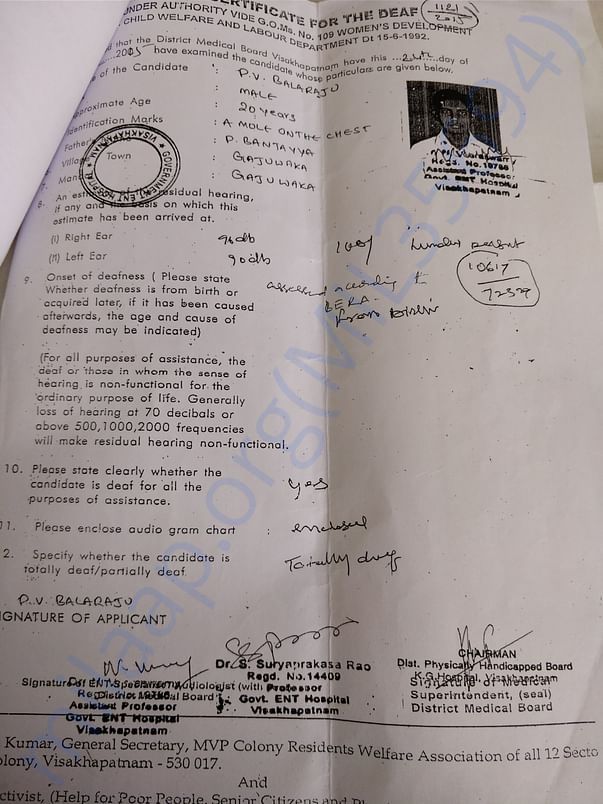 CERTIFICATE FOR THE DEAF
1121
2013
UNDER AUTHORITY VIDE G.O.Ms. No. 109 WOMEN'S DEVELOPMENT
CHILD WELFARE AND LABOUR DEPARTMENT Dt 15-6-1992.
that the District Medical Board Visakhapatnam have this day of
have examined the candidate whose particulars are given below.
of the Candidate : P.V. BALARAJU
: MALE
Approximate Age : 20 years
Identification Marks : A MOLE ON THE CHEST
Father : P. BANTAYYA
Town : GAJUWAKA
: GAJUWAKA
GOVERNMENT ENT HOSPITAL
VISAKHAPATNAM
Regd. No.
Assistant Professor
Govt. ENT Hospital
Visakhapatnam
8. An residual hearing,
if any and the basis on which this
estimate has been arrived at.
(i) Right Ear 90 db
(ii) Left Ear 90 db
10617
72379
9. Onset of deafness ( Please state
Whether deafness is from birth or
acquired later, if it has been caused
afterwards, the age and cause of
deafness may be indicated)
assessed according to
BERA
from Birth
(For all purposes of assistance, the
deaf or those in whom the sense of
hearing is non-functional for the
ordinary purpose of life. Generally
loss of hearing at 70 decibals or
above 500,1000,2000 frequencies
will make residual hearing non-functional.
10. Please state clearly whether the
candidate is deaf for all the
purposes of assistance.
yes
11. Please enclose audio gram chart : enclosed
2. Specify whether the candidate is
totally deaf/partially deaf.
Totally deaf
P.V. BALARAJU
SIGNATURE OF APPLICANT
Dr. S. Suryaprakasa Rao
Regd. No.14409
Professor
Govt. ENT Hospital
Visakhapatnam
Signature of ENT Specialist Audiologist (with
District Medical Board
Assistant Professor
Govt. ENT Hospital
Visakhapatnam
CHAIRMAN
Dist. Physically Handicapped Board
K.G.Hospital, Visakhapatnam
Signature of Medical
Superintendent, (seal)
District Medical Board
Kumar, General Secretary, MVP Colony Residents Welfare Association of all 12 Secto
olony, Visakhapatnam - 530 017.
And
ctivist, (Help for Poor People, Senior Citizens and